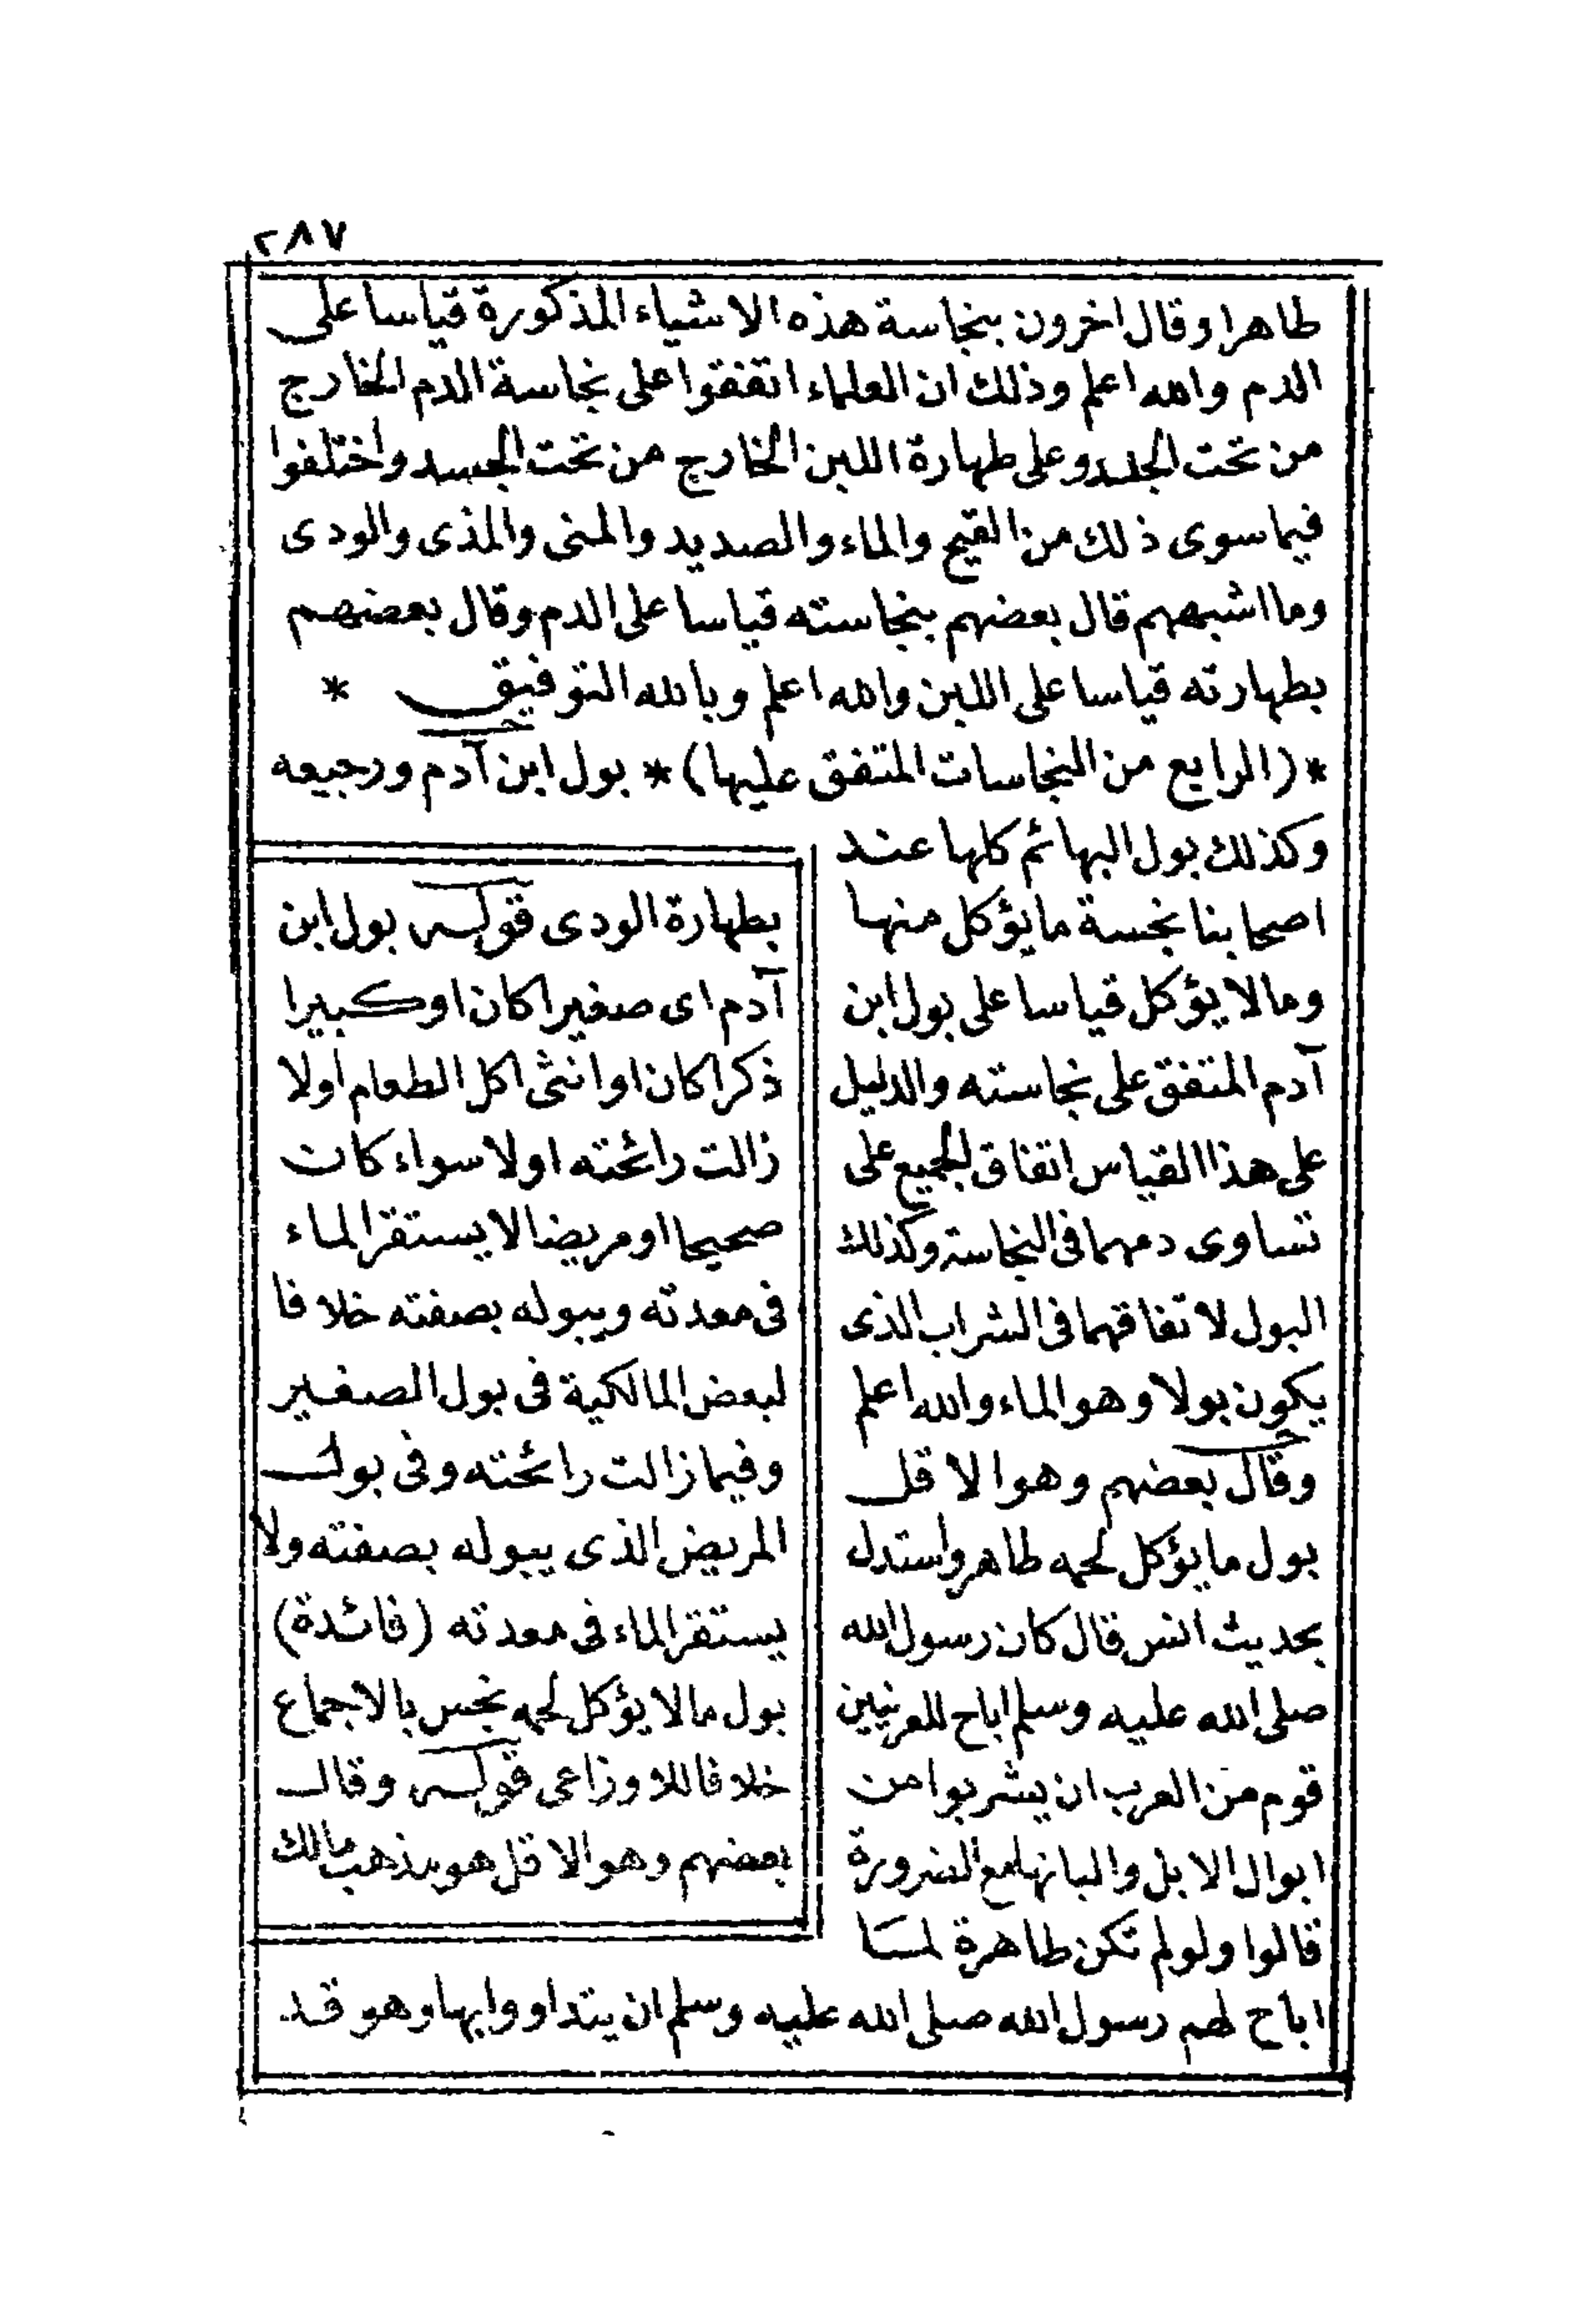 ٢٨٧
طاهرا وقال اخرون بنجاسة هذه الاشياء المذكورة قياسا على
الدم والله اعلم وذلك ان العلماء اتفقوا على نجاسة الدم الخارج
من تحت الجلد وعلى طهارة اللبن الخارج من تحت الجسد واختلفوا
فيما سوى ذلك من القيح والماء والصديد والمنى والمذى والودى
وما اشبههم قال بعضهم بنجاسته قياسا على الدم وقال بعضهم
بطهارته قياسا على اللبن والله اعلم وبالله التوفيق *
*(الرابع من النجاسات المتفق عليها)* بول ابن آدم ورجيعه
وكذلك بول البهائم كلها عند
اصحابنا نجسة ما يؤكل منها
وما لا يؤكل قياسا على بول ابن
آدم المتفق على نجاسته والدليل
على هذا القياس اتفاق الجميع على
تساوى دمهما فى النجاسة وكذلك
البول لاتفاقهما فى الشراب الذى
يكون بولا وهو الماء والله اعلم
وقال بعضهم وهو الاقل
بول ما يؤكل لحمه طاهر واستدل
بحديث انس قال كان رسول الله
صلى الله عليه وسلم اباح للعرنيين
قوم من العرب ان يشربوا من
ابوال الابل والبانها مع الضرورة
قالوا ولو لم تكن طاهرة لما
اباح لهم رسول الله صلى الله عليه وسلم ان يتداووا بها وهو قد
بطهارة الودى قوله بول ابن
آدم اى صغيرا كان او كبيرا
ذكرا كان او انثى اكل الطعام اولا
زالت رائحته اولا سواء كان
صحيحا او مريضا لا يستقر الماء
فى معدته ويبوله بصفته خلافا
لبعض المالكية فى بول الصغير
وفيما زالت رائحته وفى بول
المريض الذى يبوله بصفته ولا
يستقر الماء فى معدته (فائدة)
بول ما لا يؤكل لحمه نجس بالاجماع
خلافا للاوزاعى قوله وقال
بعضهم وهو الاقل هو مذهب مالك